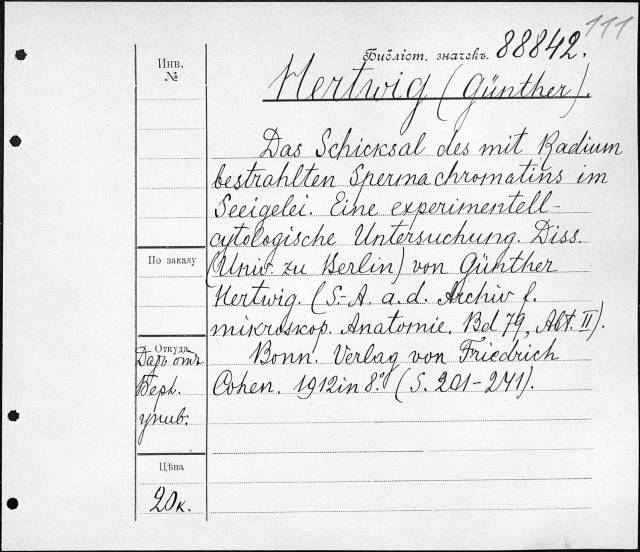 111
Библіот. значекъ. 88842.
Инв.
№
Hertwig (Günther).
Das Schicksal des mit Radium
bestrahlten Spermachromatins im
Seeigelei. Eine experimentell-
cytologische Untersuchung. Diss.
(Univ. zu Berlin) von Günther
Hertwig. (S.-A. a. d. Archiv f.
mikroskop. Anatomie. Bd 79, Abt. II).
Bonn. Verlag von Friedrich
Cohen. 1912 in 8.° (S. 201-241).
По заказу
Откуда
Даръ отъ
Берл.
унив.
Цѣна
20к.